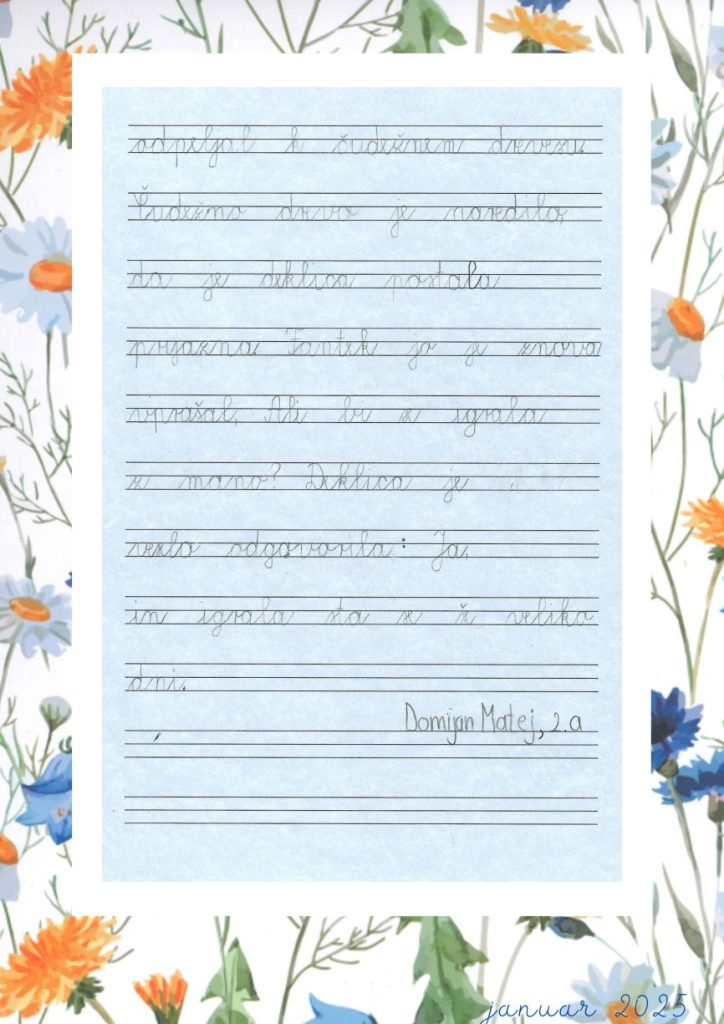 odpeljal k čudežnem drevesu.
Čudežno drevo je naredilo,
da je deklica postala
prijazna. Fantek jo je znova
vprašal, Ali bi se igrala
z mano? Deklica je
veselo odgovorila: Ja,
in igrala sta se še veliko
dni.
Domijan Matej, 2.a
januar 2025